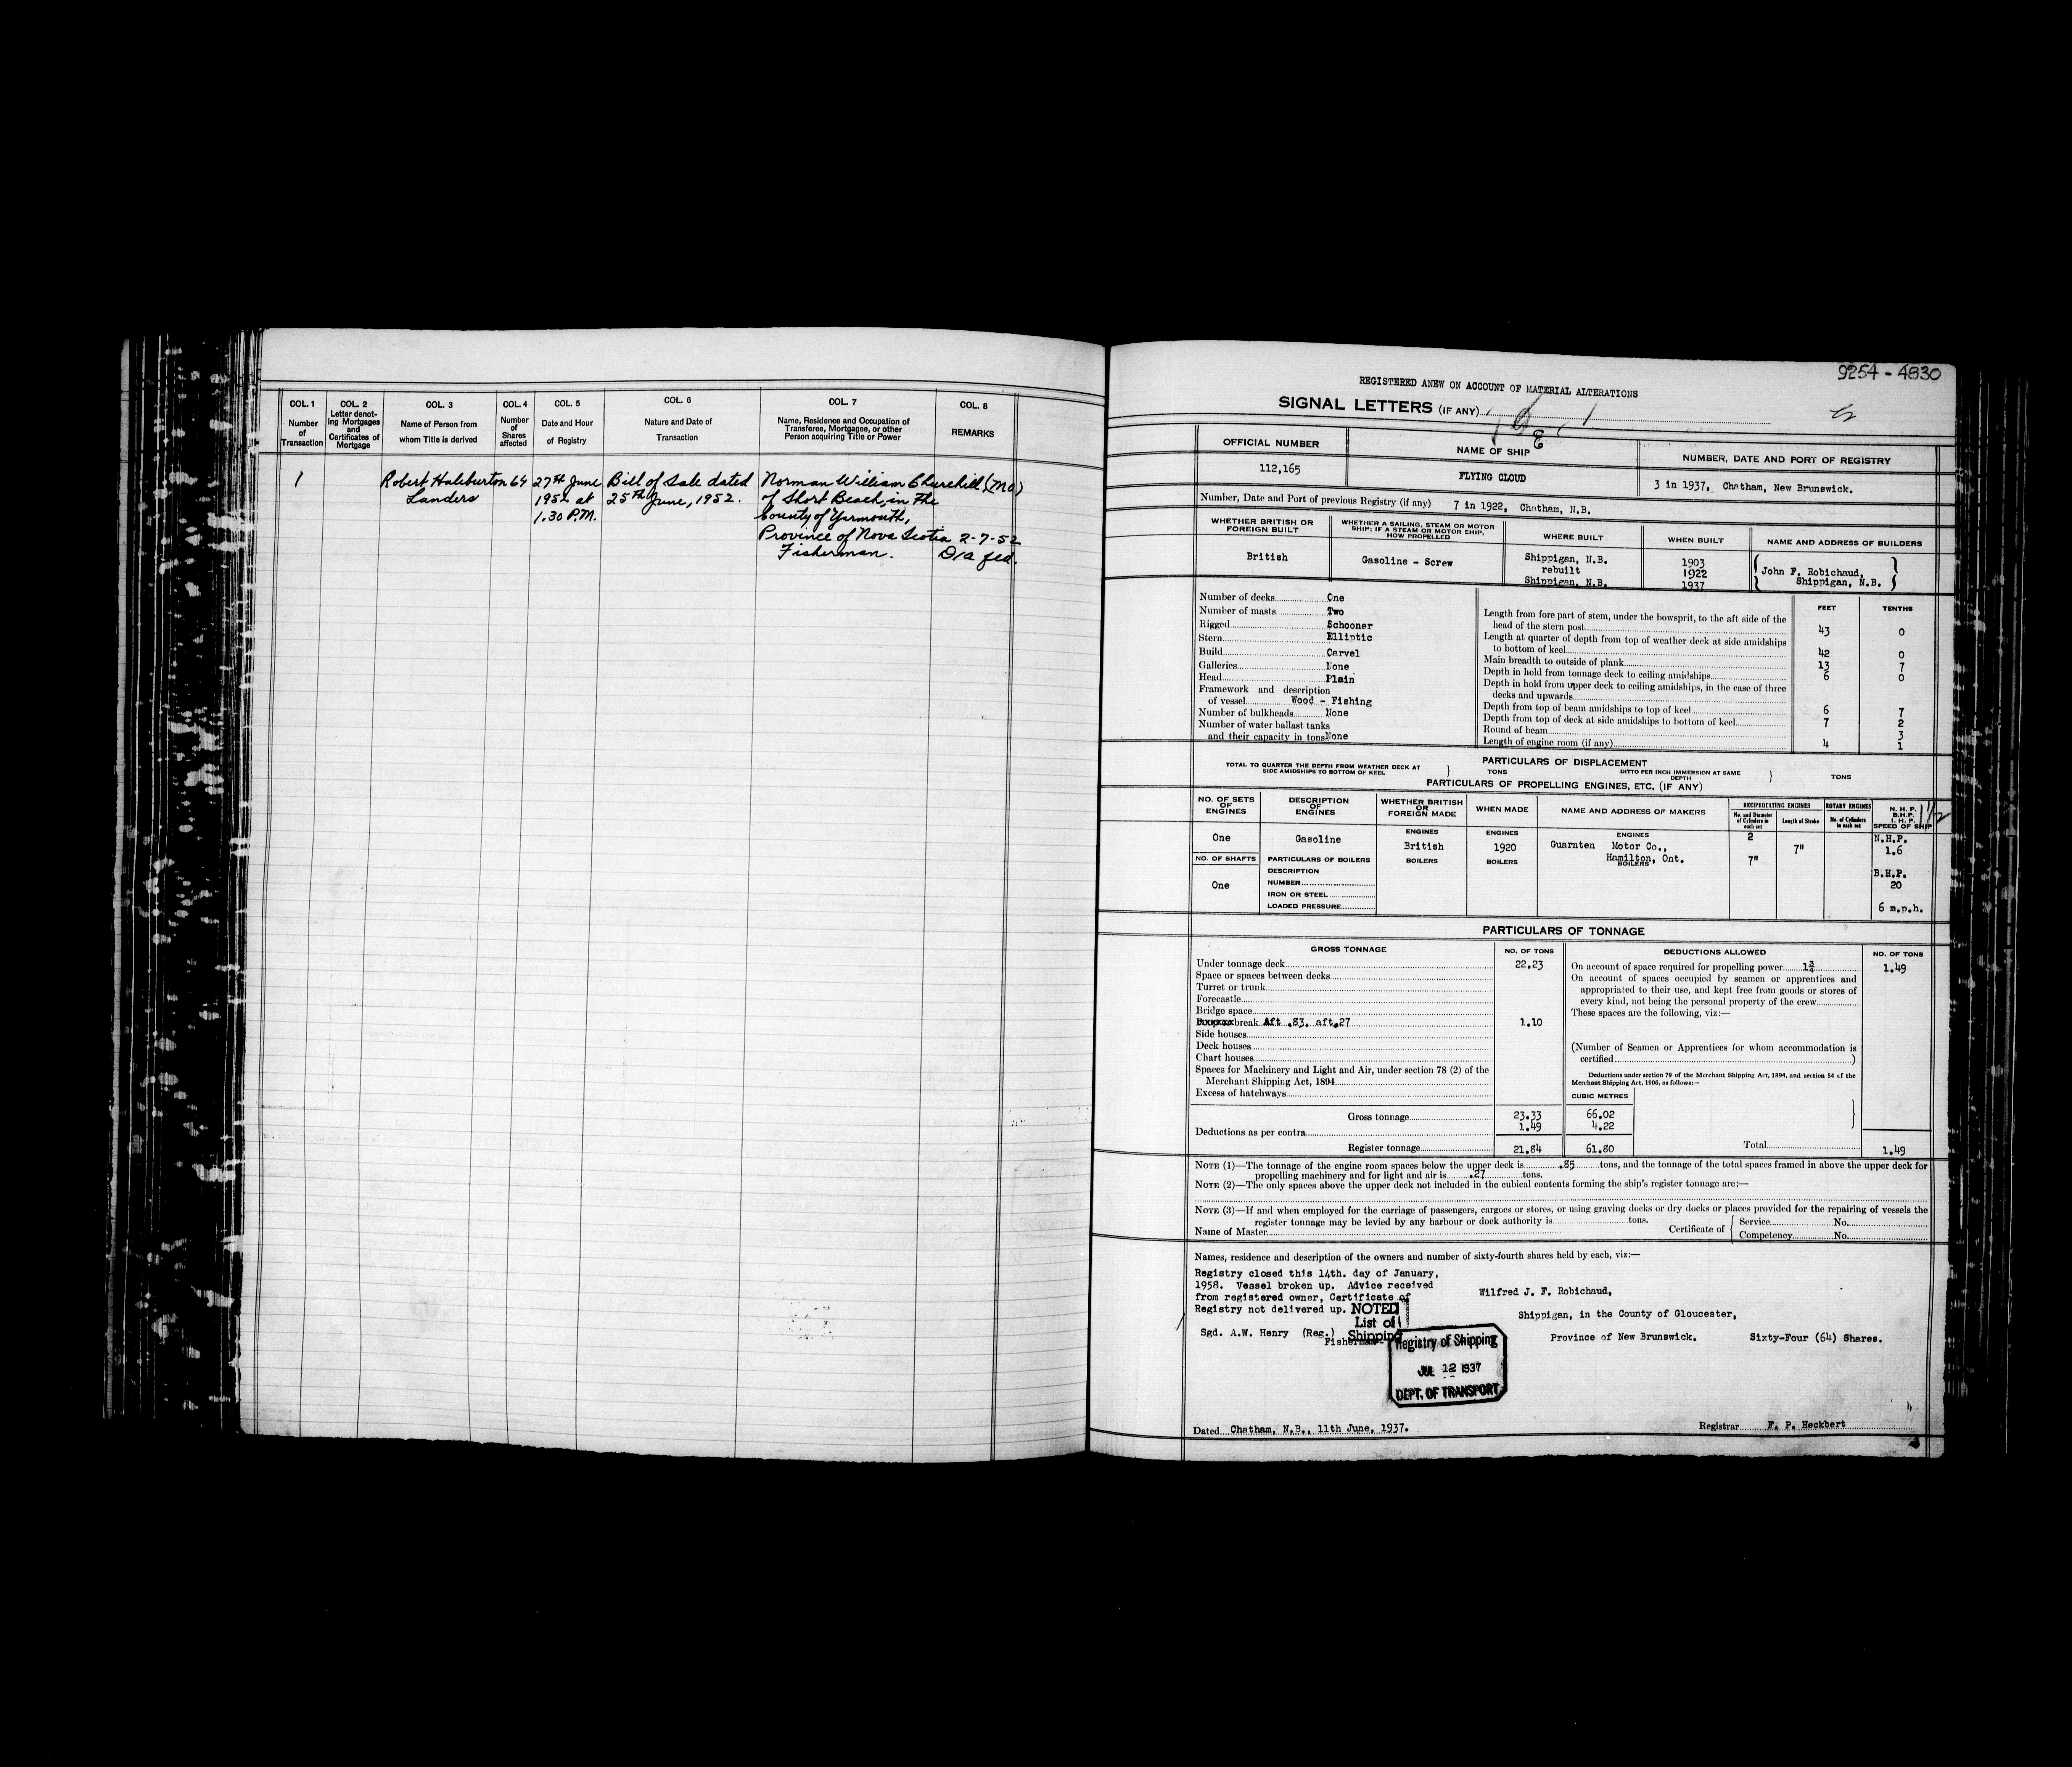 COL. 1
Number
of
Transaction
COL. 2
Letter denot-
ing Mortgages
and
Certificates of
Mortgage
COL. 3
Name of Person from
whom Title is derived
COL. 4
Number
of
Shares
affected
COL. 5
Date and Hour
of Registry
COL. 6
Nature and Date of
Transaction
COL. 7
Name, Residence and Occupation of
Transferee, Mortgagee, or other
Person acquiring Title or Power
COL. 8
REMARKS
1
Robert Haliburton
Landers
64
27th June
1952 at
1.30 P.M.
Bill of Sale dated
25th June, 1952.
Norman William Churchill (MO)
of Short Beach, in the
County of Yarmouth,
Province of Nova Scotia
Fisherman.
2-7-52
D/a fed.
9254 - 4830
REGISTERED ANEW ON ACCOUNT OF MATERIAL ALTERATIONS
SIGNAL LETTERS (IF ANY)
OFFICIAL NUMBER
112,165
NAME OF SHIP
FLYING CLOUD
NUMBER, DATE AND PORT OF REGISTRY
3 in 1937, Chatham, New Brunswick.
Number, Date and Port of previous Registry (if any) 7 in 1922, Chatham, N.B.
WHETHER BRITISH OR
FOREIGN BUILT
British
WHETHER A SAILING, STEAM OR MOTOR
SHIP; IF A STEAM OR MOTOR SHIP,
HOW PROPELLED
Gasoline - Screw
WHERE BUILT
Shippigan, N.B.
rebuilt
Shippigan, N.B.
WHEN BUILT
1903
1922
1937
NAME AND ADDRESS OF BUILDERS
John F. Robichaud,
Shippigan, N.B.
Number of decks One
Number of masts Two
Rigged Schooner
Stern Elliptic
Build Carvel
Galleries None
Head Plain
Framework and description
of vessel Wood - Fishing
Number of bulkheads None
Number of water ballast tanks
and their capacity in tons None
FEET TENTHS
Length from fore part of stem, under the bowsprit, to the aft side of the
head of the stern post 43 0
Length at quarter of depth from top of weather deck at side amidships
to bottom of keel 42 0
Main breadth to outside of plank 13 7
Depth in hold from tonnage deck to ceiling amidships 6 0
Depth in hold from upper deck to ceiling amidships, in the case of three
decks and upwards
Depth from top of beam amidships to top of keel 6 7
Depth from top of deck at side amidships to bottom of keel 7 2
Round of beam 3
Length of engine room (if any) 4 1
PARTICULARS OF DISPLACEMENT
TOTAL TO QUARTER THE DEPTH FROM WEATHER DECK AT
SIDE AMIDSHIPS TO BOTTOM OF KEEL
TONS
DITTO PER INCH IMMERSION AT SAME
DEPTH
TONS
PARTICULARS OF PROPELLING ENGINES, ETC. (IF ANY)
NO. OF SETS
OF
ENGINES
One
NO. OF SHAFTS
One
DESCRIPTION
OF
ENGINES
Gasoline
PARTICULARS OF BOILERS
DESCRIPTION
NUMBER
IRON OR STEEL
LOADED PRESSURE
WHETHER BRITISH
OR
FOREIGN MADE
ENGINES
British
BOILERS
WHEN MADE
ENGINES
1920
BOILERS
NAME AND ADDRESS OF MAKERS
ENGINES
Guarnten Motor Co.,
Hamilton, Ont.
BOILERS
RECIPROCATING ENGINES
No. and Diameter
of Cylinders in
each set
2
7"
Length of Stroke
7"
ROTARY ENGINES
No. of Cylinders
in each set
N. H. P.
B.H.P.
I. H. P.
SPEED OF SHIP
N.H.P.
1.6
B.H.P.
20
6 m.p.h.
PARTICULARS OF TONNAGE
GROSS TONNAGE
NO. OF TONS
Under tonnage deck 22.23
Space or spaces between decks
Turret or trunk
Forecastle
Bridge space
break Aft .83. aft.27 1.10
Side houses
Deck houses
Chart houses
Spaces for Machinery and Light and Air, under section 78 (2) of the
Merchant Shipping Act, 1894
Excess of hatchways
Gross tonnage 23.33 66.02
Deductions as per contra 1.49 4.22
Register tonnage 21.84 61.80
DEDUCTIONS ALLOWED
NO. OF TONS
On account of space required for propelling power 1¾ 1.49
On account of spaces occupied by seamen or apprentices and
appropriated to their use, and kept free from goods or stores of
every kind, not being the personal property of the crew
These spaces are the following, viz:—
(Number of Seamen or Apprentices for whom accommodation is
certified )
Deductions under section 79 of the Merchant Shipping Act, 1894, and section 54 of the
Merchant Shipping Act, 1906, as follows:—
CUBIC METRES
Total 1.49
NOTE (1)—The tonnage of the engine room spaces below the upper deck is .85 tons, and the tonnage of the total spaces framed in above the upper deck for
propelling machinery and for light and air is .27 tons.
NOTE (2)—The only spaces above the upper deck not included in the cubical contents forming the ship's register tonnage are:—
NOTE (3)—If and when employed for the carriage of passengers, cargoes or stores, or using graving docks or dry docks or places provided for the repairing of vessels the
register tonnage may be levied by any harbour or dock authority is tons.
Name of Master
Certificate of
Service No.
Competency No.
Names, residence and description of the owners and number of sixty-fourth shares held by each, viz:—
Registry closed this 14th. day of January,
1958. Vessel broken up. Advice received
from registered owner, Certificate of
Registry not delivered up.
Sgd. A.W. Henry (Reg.)
Fisherman
NOTED
List of
Shipping
Wilfred J. F. Robichaud,
Shippigan, in the County of Gloucester,
Province of New Brunswick. Sixty-Four (64) Shares.
Registry of Shipping
JUL 12 1937
DEPT. OF TRANSPORT
Dated Chatham, N.B., 11th June, 1937.
Registrar F. P. Heckbert